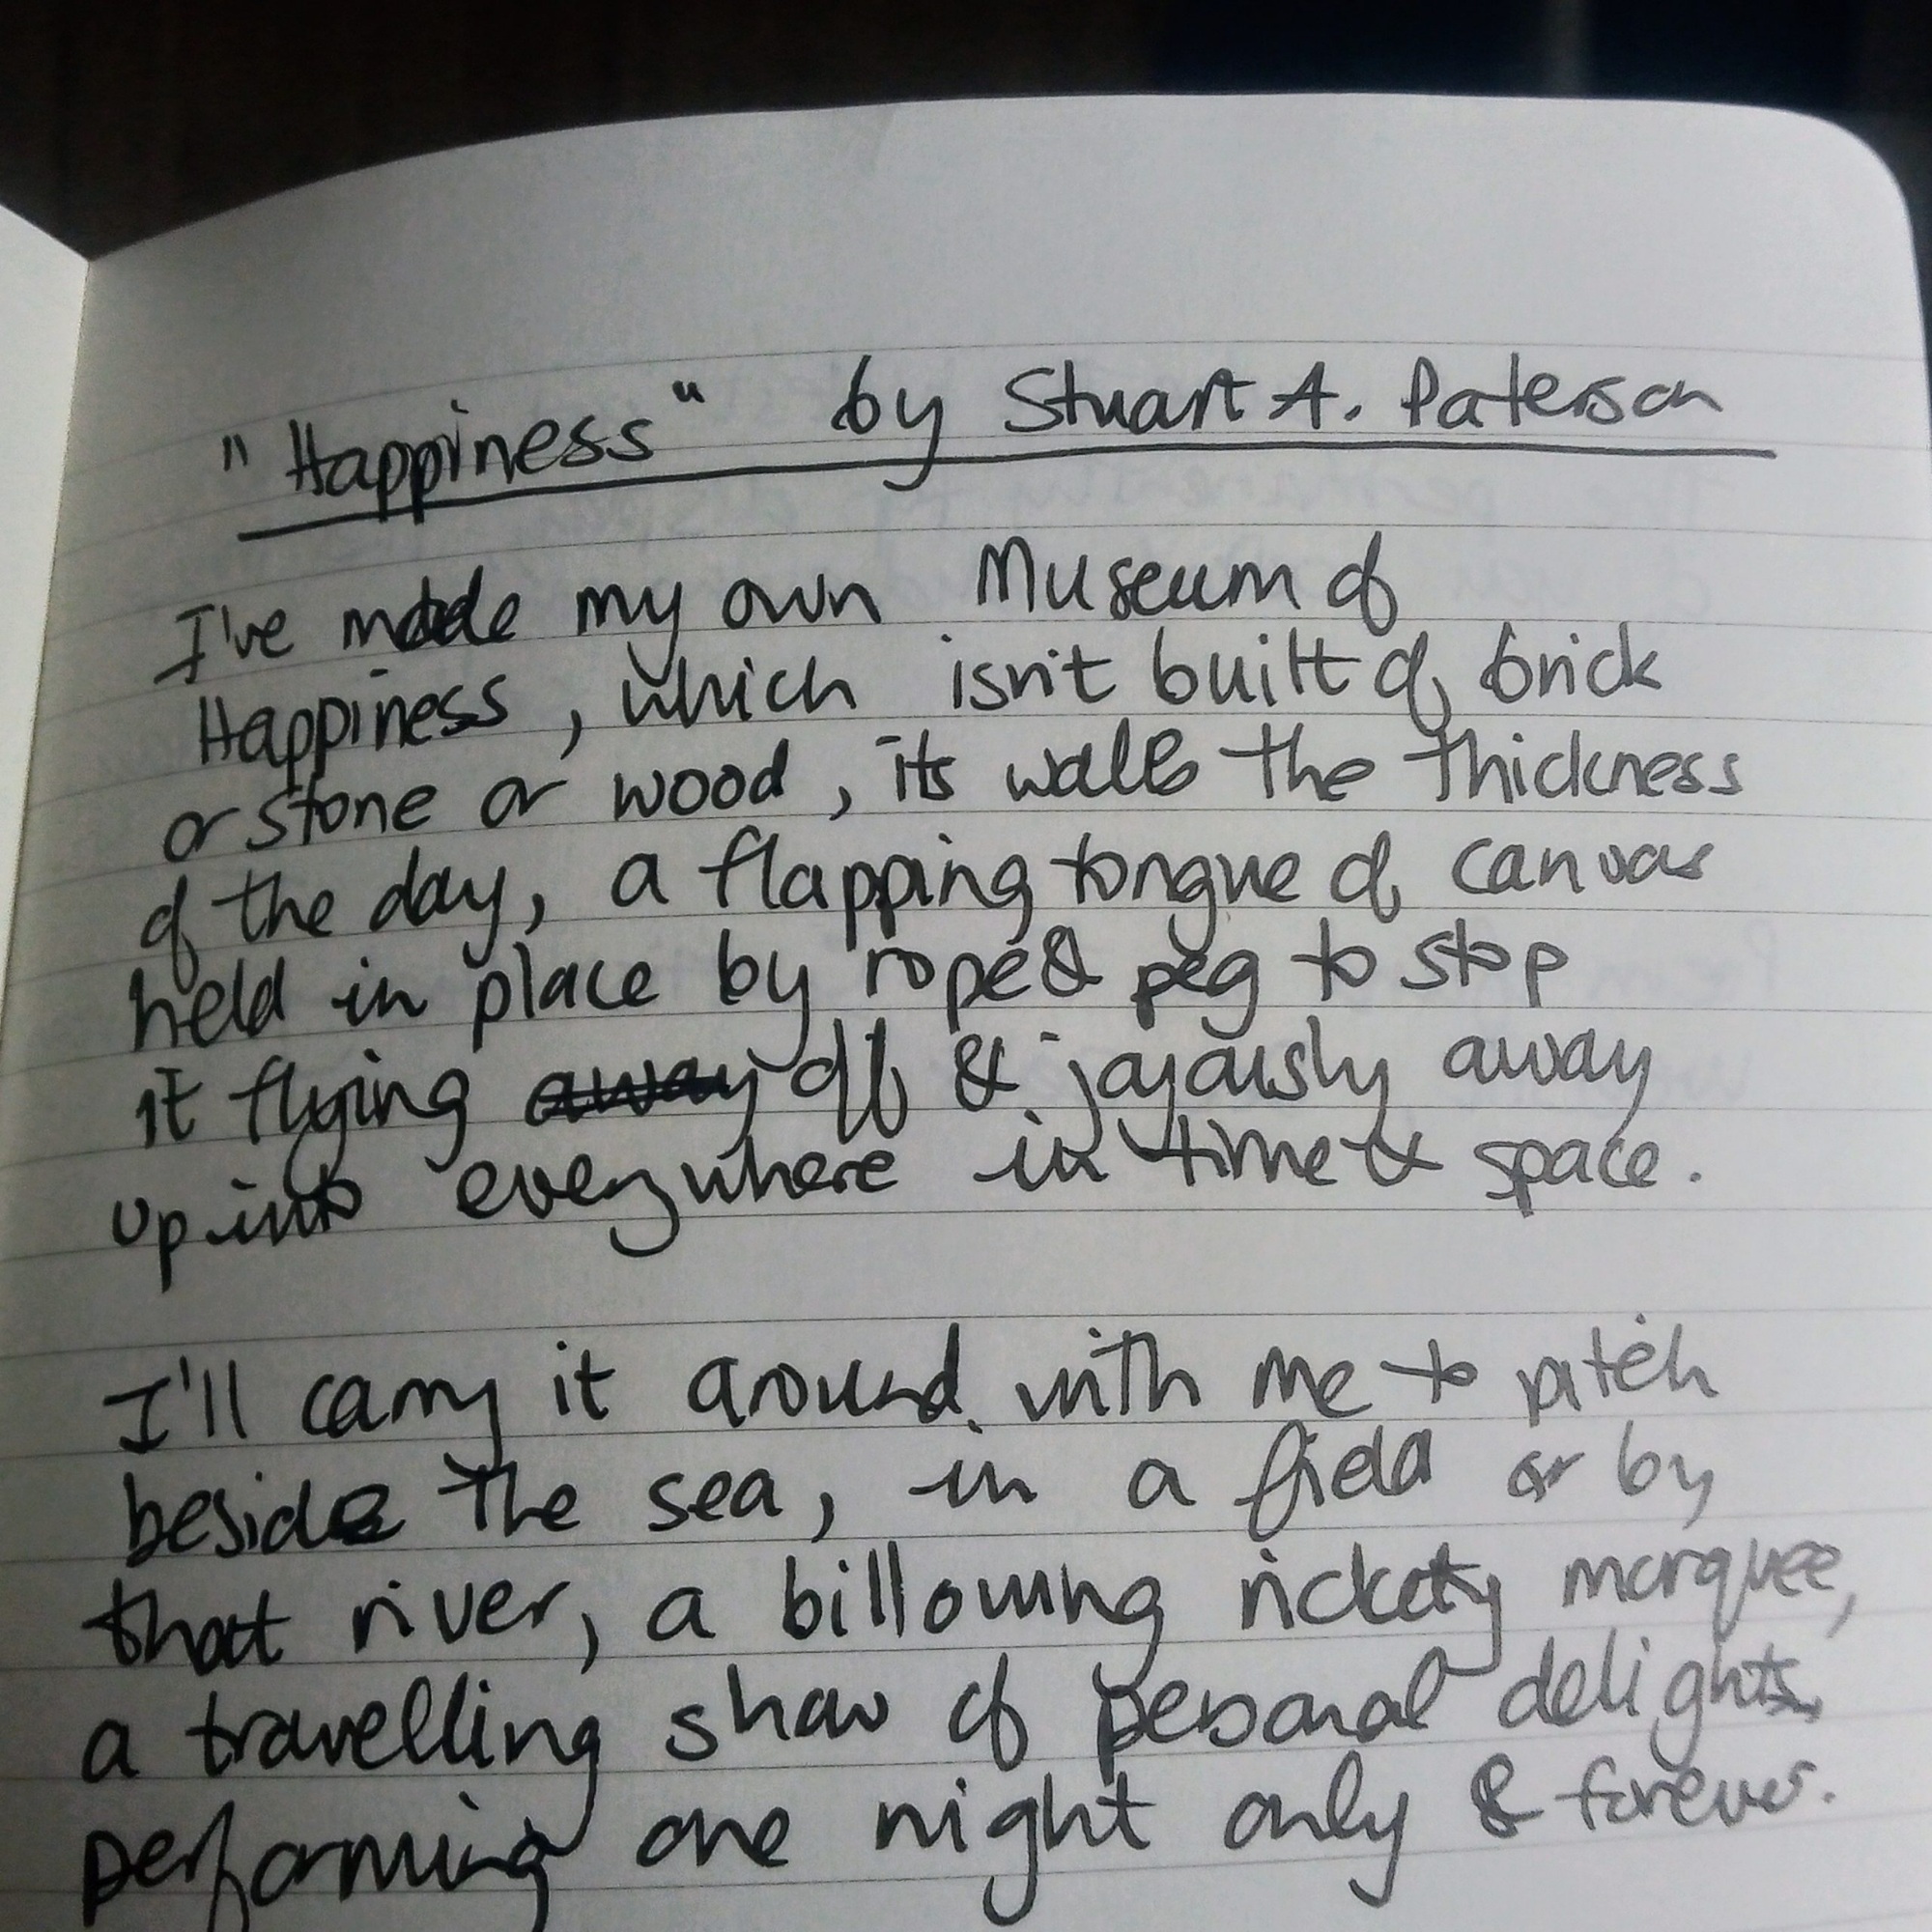 "Happiness" by Stuart A. Paterson
I've made my own Museum of
Happiness, which isn't built of brick
or stone or wood, its walls the thickness
of the day, a flapping tongue of canvas
held in place by rope & peg to stop
it flying away off & joyously away
up into everywhere in time & space.
I'll carry it around with me to pitch
beside the sea, in a field or by
that river, a billowing rickety marquee,
a travelling show of personal delights,
performing one night only & forever.